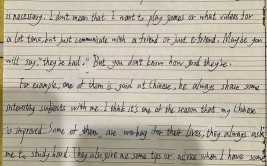 is necessary. I don't mean that I want to play games or what videos for
a lot time, but just communicate with a friend or just e-friend. Maybe you
will say, "they're bad." But you don't know how good they're.
For example, one of them is good at Chinese, he always share some
interesting subjects with me. I think it's one of the reason that my Chinese
is improved. Some of them are working for their lives, they always ask
me to study hard. They also give me some tips or advice when I have some